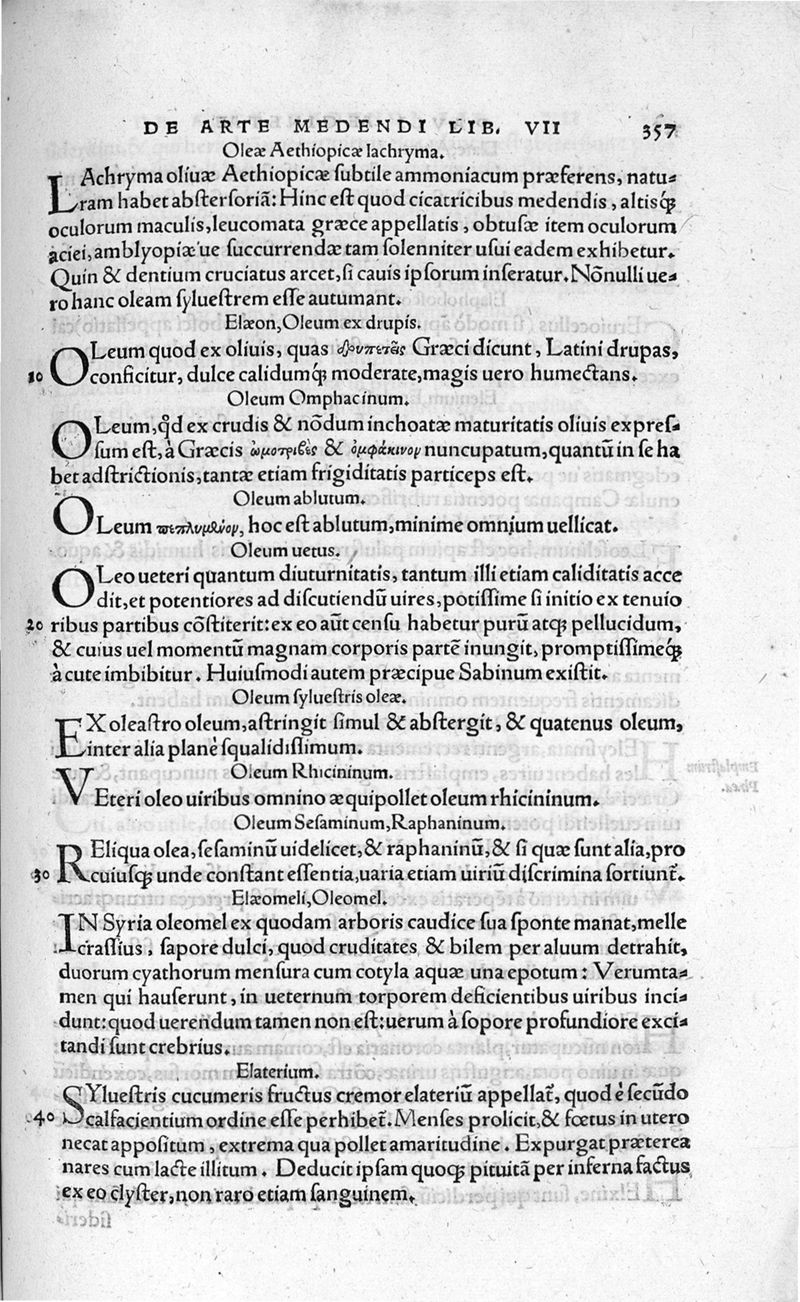 DE ARTE MEDENDI LIB. VII 357
Oleæ Aethiopicæ lachryma.
LAchryma oliuæ Aethiopicæ subtile ammoniacum præferens, natu-
ram habet abstersoriã: Hinc est quod cicatricibus medendis, altisq́;
oculorum maculis, leucomata græce appellatis, obtusæ item oculorum
aciei, amblyopiæ'ue succurrendæ tam solenniter usui eadem exhibetur.
Quin & dentium cruciatus arcet, si cauis ipsorum inseratur. Nõnulli ue-
ro hanc oleam syluestrem esse autumant.
Elæon, Oleum ex drupis.
OLeum quod ex oliuis, quas δρυπεπᾶς Græci dicunt, Latini drupas,
10 conficitur, dulce calidumq́; moderate, magis uero humectans.
Oleum Omphacinum.
OLeum, qđ ex crudis & nõdum inchoatæ maturitatis oliuis expres-
sum est, à Græcis ὠμοτριβὲς & ὀμφάκινον nuncupatum, quantũ in se ha
bet adstrictionis, tantæ etiam frigiditatis particeps est.
Oleum ablutum.
OLeum πεπλυμλύον, hoc est ablutum, minime omnium uellicat.
Oleum uetus.
OLeo ueteri quantum diuturnitatis, tantum illi etiam caliditatis acce
dit, et potentiores ad discutiendũ uires, potissime si initio ex tenuio
20 ribus partibus cõstiterit: ex eo aũt censu habetur purũ atq; pellucidum,
& cuius uel momentũ magnam corporis partẽ inungit, promptissimeq́;
à cute imbibitur. Huiusmodi autem præcipue Sabinum existit.
Oleum syluestris oleæ.
EX oleastro oleum, astringit simul & abstergit, & quatenus oleum,
inter alia planè squalidissimum.
Oleum Rhicininum.
VEteri oleo uiribus omnino æquipollet oleum rhicininum.
Oleum Sesaminum, Raphaninum.
REliqua olea, sesaminũ uidelicet, & raphaninũ, & si quæ sunt alia, pro
30 cuiusq; unde constant essentia, uaria etiam uiriũ discrimina sortiunt̃.
Elæomeli, Oleomel.
IN Syria oleomel ex quodam arboris caudice sua sponte manat, melle
crassius, sapore dulci, quod cruditates & bilem per aluum detrahit,
duorum cyathorum mensura cum cotyla aquæ una epotum: Verumta-
men qui hauserunt, in ueternum torporem deficientibus uiribus inci-
dunt: quod uerendum tamen non est: uerum à sopore profundiore exci-
tandi sunt crebrius.
Elaterium.
SYluestris cucumeris fructus cremor elateriũ appellat̃, quod è secũdo
40 calfacientium ordine esse perhibet̃. Menses prolicit, & fœtus in utero
necat appositum, extrema qua pollet amaritudine. Expurgat præterea
nares cum lacte illitum. Deducit ipsam quoq; pituitã per inferna factus
ex eo clyster, non raro etiam sanguinem.